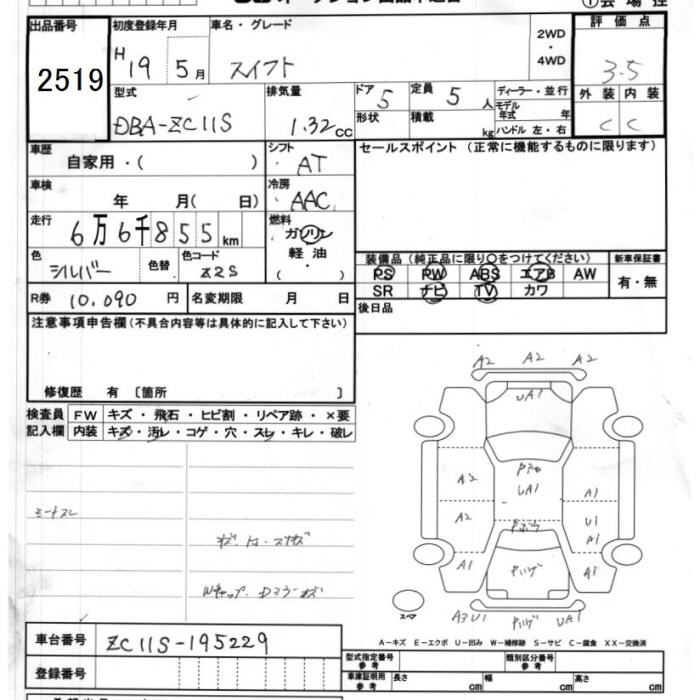 出品番号 初度登録年月 車名・グレード 2WD ・ 4WD 評価点
2519 H19 5月 スイフト 3.5
型式 排気量 ドア 5 定員 5人 ディーラー・並行 外装 内装
DBA-ZC11S 1.32 CC 形状 積載 kg モデル年式 年 ハンドル 左・右 C C
車歴 自家用・( ) シフト AT セールスポイント (正常に機能するものに限ります)
車検 年 月( 日) 冷房 AAC
走行 6万6千855km 燃料 ガソリン 軽油 ( )
色 シルバー 色替 色コード Z2S
装備品 (純正品に限り○をつけてください) 新車保証書
PS PW ABS エアB AW 有・無
SR ナビ TV カワ
R券 10,090 円 名変期限 月 日 後日品
注意事項申告欄(不具合内容等は具体的に記入して下さい)
修復歴 有 〔箇所 〕
検査員 FW キズ・飛石・ヒビ割・リペア跡・×要
記入欄 内装 キズ・汚レ・コゲ・穴・スレ・キレ・破レ
シートスレ
A2 A2 A2
UA1
A2 UA1 A1
A2 U1
A1 A1
スペア A3 U1 UA1
A-キズ E-エクボ U-凹み W-補修跡 S-サビ C-腐食 XX-交換済
車台番号 ZC11S-195229
登録番号
型式指定番号 参考 類別区分番号 参考
車庫証明用 参考 長さ cm 幅 cm 高さ cm